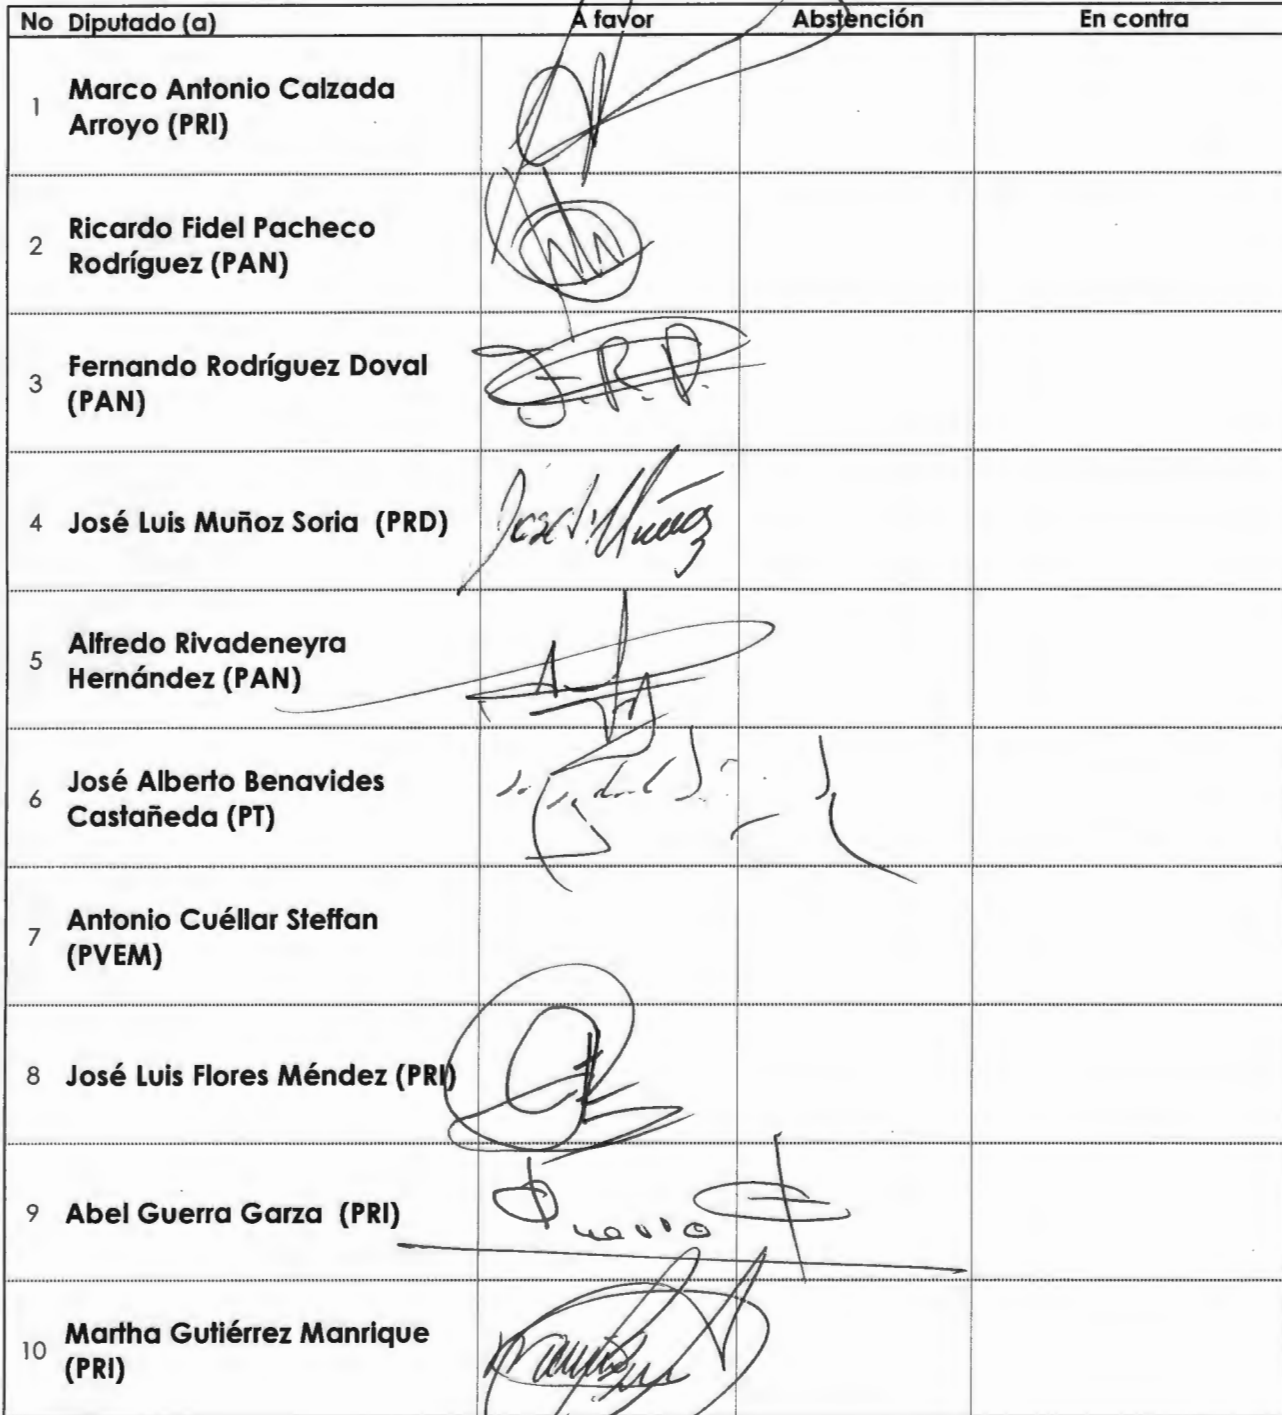 No Diputado (a) A favor Abstención En contra
1 Marco Antonio Calzada
Arroyo (PRI)
2 Ricardo Fidel Pacheco
Rodríguez (PAN)
3 Fernando Rodríguez Doval
(PAN)
F.R.D.
4 José Luis Muñoz Soria (PRD)
José L. Muñoz
5 Alfredo Rivadeneyra
Hernández (PAN)
6 José Alberto Benavides
Castañeda (PT)
7 Antonio Cuéllar Steffan
(PVEM)
8 José Luis Flores Méndez (PRI)
9 Abel Guerra Garza (PRI)
10 Martha Gutiérrez Manrique
(PRI)